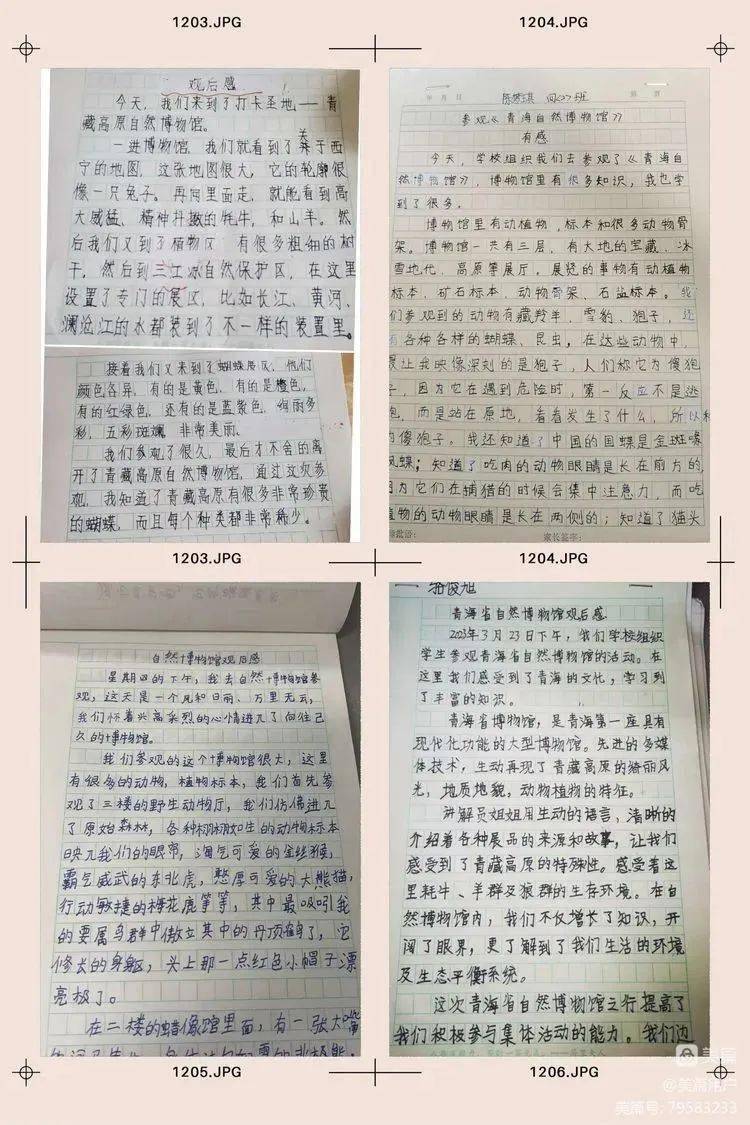 1203.JPG
1204.JPG
观后感
今天，我们来到了打卡圣地——青
藏高原自然博物馆。
一进博物馆，我们就看到了关于西
宁的地图，这张地图很大，它的轮廓很
像一只兔子。再向里面走，就能看到高
大威猛、精神抖擞的牦牛，和山羊。然
后我们又到了植物区，有很多粗细的树
干，然后到三江源自然保护区，在这里
设置了专门的展区，比如长江、黄河、
澜沧江的水都装到了不一样的装置里。
接着我们又来到了蝴蝶展区，他们
颜色各异，有的是黄色，有的是橙色，
有的红绿色，还有的是蓝紫色，绚丽多
彩，五彩斑斓，非常美丽。
我们参观了很久，最后才不舍的离
开了青藏高原自然博物馆，通过这次参
观，我知道了青藏高原有很多非常珍贵
的蝴蝶，而且每个种类都非常稀少。
四（7）班
年 月 日
参观《青海自然博物馆》
有感
今天，学校组织我们去参观了《青海自
然博物馆》，博物馆里有很多知识，我也学
到了很多。
博物馆里有动植物，标本和很多动物骨
架。博物馆一共有三层，有大地的宝藏、冰
雪地代、高原等展厅。展览的事物有动植物
标本、矿石标本、动物骨架、石盐标本。我
们参观到的动物有藏羚羊、雪豹、狍子，还
有各种各样的蝴蝶、昆虫，在这些动物中，
最让我映像深刻的是狍子，人们称它为傻狍
子，因为它在遇到危险时，第一反应不是逃
跑，而是站在原地，看看发生了什么，所以称
为傻狍子。我还知道了中国的国蝶是金斑喙
凤蝶；知道了吃肉的动物眼睛是长在前方的，
因为它们在捕猎的时候会集中注意力，而吃
植物的动物眼睛是长在两侧的；知道了猫头
家长签字：
1203.JPG
1204.JPG
自然博物馆观后感
星期四的下午，我去自然博物馆参
观，这天是一个风和日丽、万里无云，
我们怀着兴高采烈的心情进入了向往己
久的博物馆。
我们参观的这个博物馆很大，这里
有很多的动物，植物标本，我们首先参
观了三楼的野生动物厅，我们仿佛进入
了原始森林，各种栩栩如生的动物标本
映入我们的眼帘，淘气可爱的金丝猴，
霸气威武的东北虎，憨厚可爱的大熊猫，
行动敏捷的梅花鹿等等，其中最吸引我
的要属鸟群中傲立其中的丹顶鹤了，它
修长的身躯，头上那一点红色小帽子漂
亮极了。
在二楼的蜡像馆里面，有一张大
骆俊旭
青海省自然博物馆观后感
2023年3月23日下午，我们学校组织
学生参观青海省自然博物馆的活动。在
这里我们感受到了青海的文化，学习到
了丰富的知识。
青海省博物馆，是青海第一座具有
现代化功能的大型博物馆。先进的多媒
体技术，生动再现了青藏高原的绮丽风
光，地质地貌，动物植物的特征。
讲解员姐姐用生动的语言，清晰的
介绍着各种展品的来源和故事，让我们
感受到了青藏高原的特殊性。感受着这
里牦牛、羊群及狼群的生存环境。在自
然博物馆内，我们不仅增长了知识，开
阔了眼界，更了解到了我们生活的环境
及生态平衡系统。
这次青海省自然博物馆之行提高了
我们积极参与集体活动的能力。我们边
1205.JPG
1206.JPG
美篇
@美篇用户
美篇号：79583233